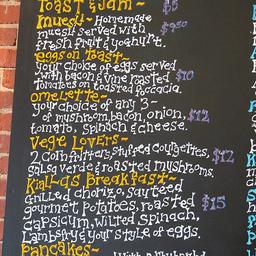 Toast & Jam~ $5
Muesli~ Homemade
muesli served with $9.50
fresh fruit & yoghurt.
eggs on Toast~
your choice of eggs served
with bacon & vine roasted $10
tomatoes on toasted foccacia.
omelette~
your choice of any 3~
of mushroom, bacon, onion, $12
tomato, spinach & cheese.
Vege Lovers~
2 corn fritters, stuffed courgettes, $12
salsa verde & roasted mushrooms.
Breakfast~
Grilled chorizo, sauteed
gourmet potatoes, roasted $15
capsicum, wilted spinach,
& your style of eggs.
Pancakes~